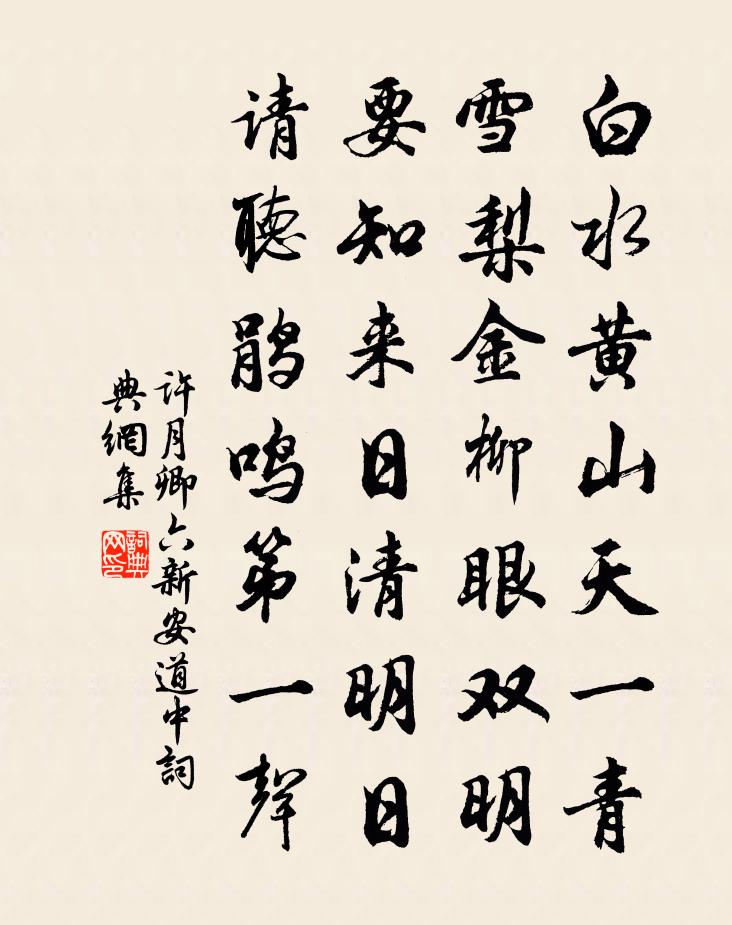 白水黄山天一青
雪梨金柳眼双明
要知来日清明日
请聽鹃鸣第一聲
许月卿六新安道中詞
典網集
詞典
网印